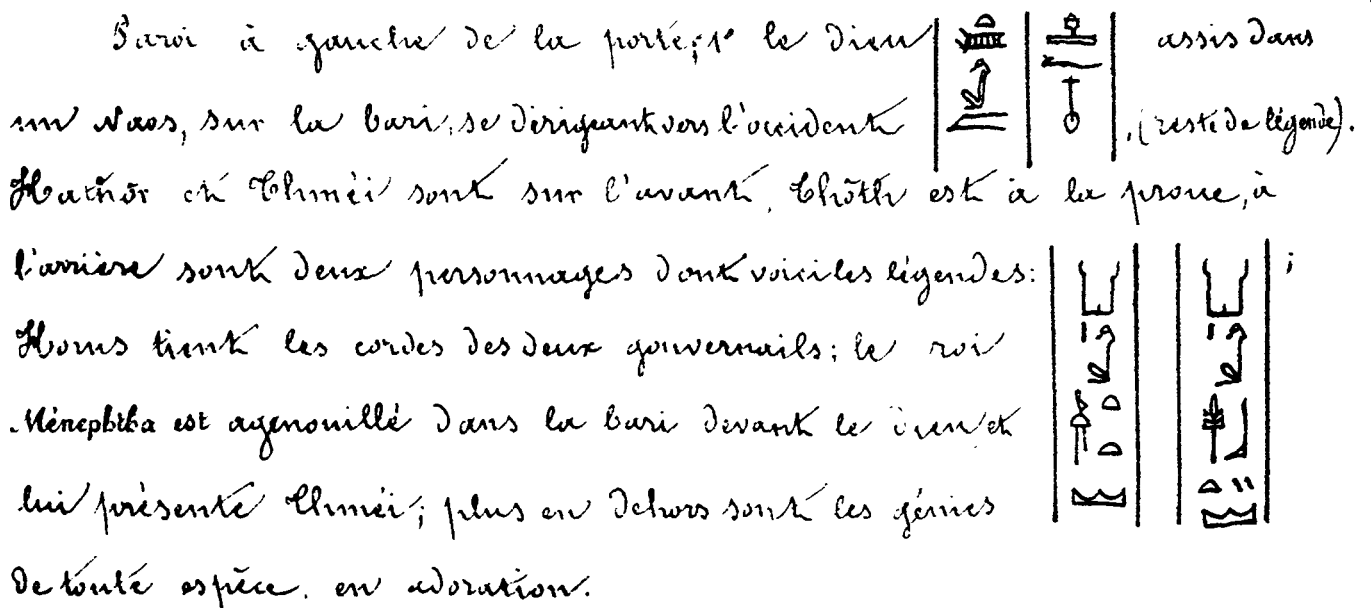 Paroi à gauche de la porte; 1° le dieu assis dans
un Naos, sur la bari, se dirigeant vers l'occident , (reste de légende).
Hathôr et Thméi sont sur l'avant, Thôth est à la proue, à
l'arrière sont deux personnages dont voici les légendes: ;
Horus tient les cordes des deux gouvernails; le roi
Ménephtha est agenouillé dans la bari devant le dieu et
lui présente Thméi; plus en dehors sont les génies
de toute espèce, en adoration.